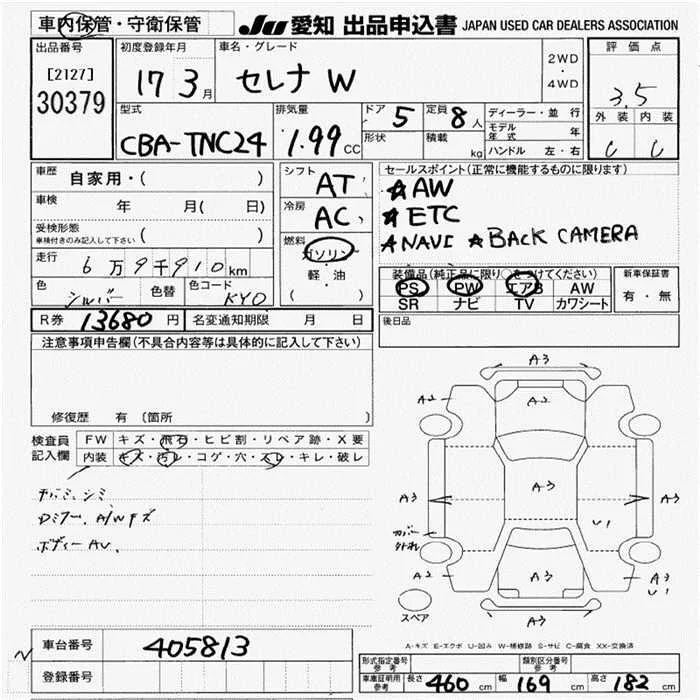 車内保管・守衛保管
JU 愛知 出品申込書 JAPAN USED CAR DEALERS ASSOCIATION
出品番号
[2127]
30379
初度登録年月
17 3月
車名・グレード
セレナ W
2WD
・
4WD
評価点
3.5
外装 内装
C C
型式
CBA-TNC24
排気量
1.99cc
ドア 5
形状
定員 8人
積載 kg
ディーラー・並行
モデル年式 年
ハンドル 左・右
車歴
自家用・( )
車検
年 月( 日)
受検形態
車検付きのみ記入して下さい ( )
走行
6万9千910km
色
シルバー
色替
色コード
KY0
シフト
AT
冷房
AC
燃料
ガソリン
軽・油
( )
セールスポイント(正常に機能するものに限ります)
☆AW
☆ETC
☆NAVI ☆BACK CAMERA
装備品(純正品に限り○をつけてください)
PS PW エアB AW
SR ナビ TV カワシート
新車保証書
有・無
R券 13680円 名変通知期限 月 日
後日品
注意事項申告欄(不具合内容等は具体的に記入して下さい)
修復歴 有 〔箇所 〕
検査員
記入欄
FW キズ・飛石・ヒビ割・リペア跡・X要
内装 キズ・汚レ・コゲ・穴・スレ・キレ・破レ
シミ
Dミラー、A/Wキズ
ボディーAU、
A3
A2 A2
A3 A3 A3
カバー
外れ
U1
A2 A3 A3
U1
A3
スペア
A-キズ E-エクボ U-凹み W-補修跡 S-サビ C-腐食 XX-交換済
車台番号 405813
登録番号
形式指定番号
参考
類別区分番号
車庫証明用
参考
長さ 460cm 幅 169cm 高さ 182cm